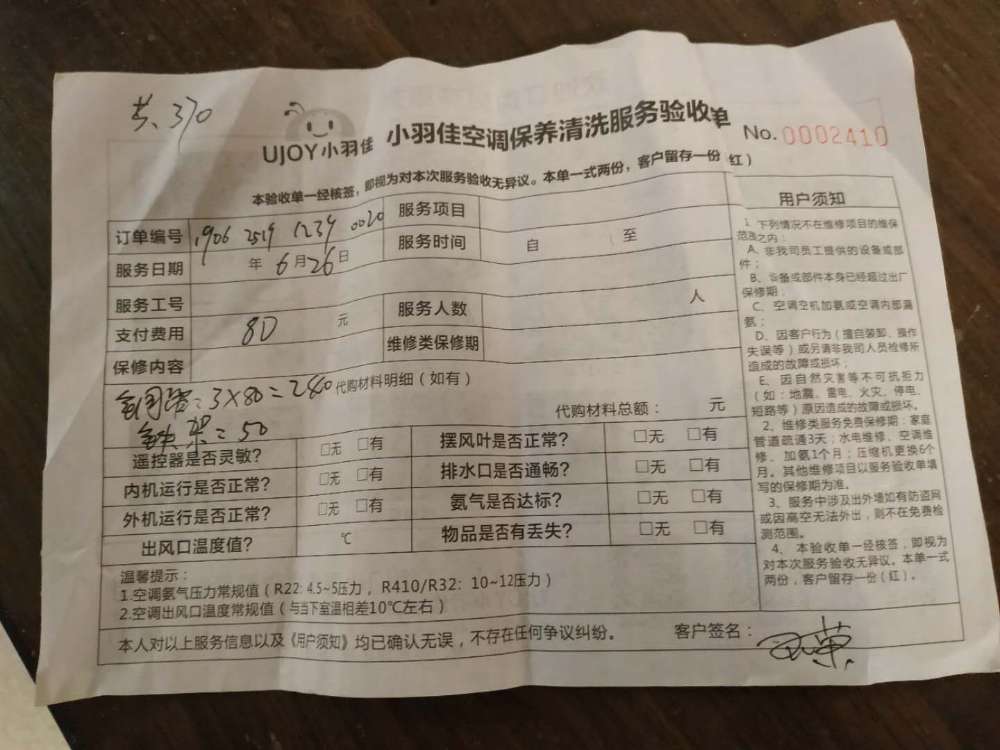 共:370
UJOY小羽佳 小羽佳空调保养清洗服务验收单 No. 0002410
本验收单一经核签，即视为对本次服务验收无异议。本单一式两份，客户留存一份（红）
订单编号 1906 2519 1234 0020 服务项目
服务日期 年 6月26日 服务时间 自 至
服务工号 服务人数 人
支付费用 80 元 维修类保修期
保修内容
3×80=240 代购材料明细（如有）
架=50 代购材料总额： 元
遥控器是否灵敏？ □无 □有 摆风叶是否正常？ □无 □有
内机运行是否正常？ □无 □有 排水口是否通畅？ □无 □有
外机运行是否正常？ □无 □有 氨气是否达标？ □无 □有
出风口温度值？ ℃ 物品是否有丢失？ □无 □有
温馨提示：
1.空调氨气压力常规值（R22: 4.5~5压力，R410/R32: 10~12压力）
2.空调出风口温度常规值（与当下室温相差10℃左右）
本人对以上服务信息以及《用户须知》均已确认无误，不存在任何争议纠纷。 客户签名：
用户须知
1、下列情况不在维修项目的维保
范围之内：
A、非我司员工提供的设备或部
件；
B、设备或部件本身已经超过出厂
保修期；
C、空调空机加氨或空调内部漏
氨；
D、因客户行为（擅自装卸、操作
失误等）或另请非我司人员检修所
造成的故障或损坏；
E、因自然灾害等不可抗拒力
（如：地震、雷电、火灾、停电、
短路等）原因造成的故障或损坏。
2、维修类服务免费保修期：家庭
管道疏通3天；水电维修、空调维
修、加氨1个月；压缩机更换6个
月。其他维修项目以服务验收单填
写的保修期为准。
3、服务中涉及出外墙如有防盗网
或因高空无法外出，则不在免费检
测范围。
4、本验收单一经核签，即视为
对本次服务验收无异议。本单一式
两份，客户留存一份（红）。